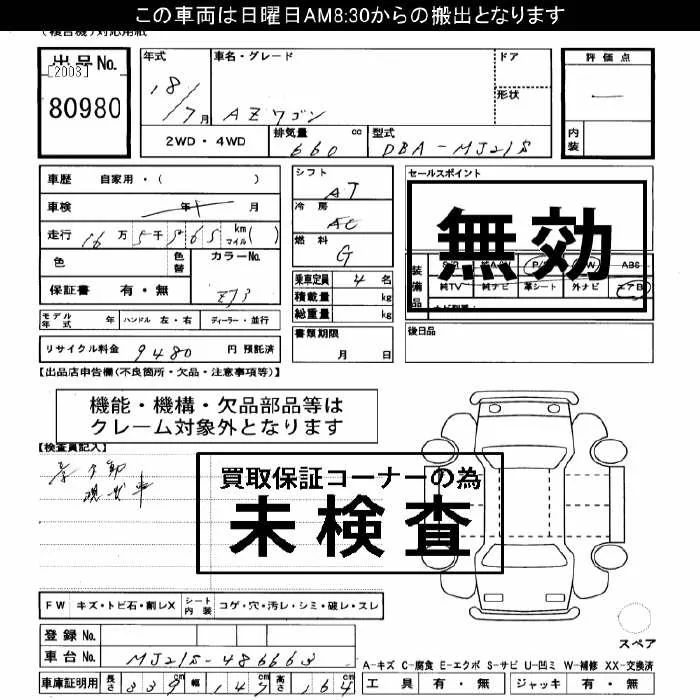 この車両は日曜日AM8:30からの搬出となります
(複合機)対応用紙
出品No.
[2003]
80980
年式
18/7月
車名・グレード
AZワゴン
ドア
形状
評価点
内装
2WD・4WD
排気量 660 cc
型式 DBA-MJ21S
車歴 自家用・( )
車検 年 月
走行 16万5千565 km マイル( )
色
色替
カラーNo.
ZJ3
保証書 有・無
シフト AT
冷房 AC
燃料 G
乗車定員 4名
積載量 kg
総重量 kg
書類期限
月 日
セールスポイント
無効
装備品
ABS
純TV 純ナビ 革シート 外ナビ エアB
後日品
モデル年式 年 ハンドル 左・右 ディーラー・並行
リサイクル料金 9480 円 預託済
【出品店申告欄(不良箇所・欠品・注意事項等)】
機能・機構・欠品部品等は
クレーム対象外となります
【検査員記入】
買取保証コーナーの為
未検査
FW キズ・トビ石・割レX シート内装 コゲ・穴・汚レ・シミ・破レ・スレ
登録No.
車台No. MJ21S-486663
車庫証明用 長さ 339cm 幅 147cm 高さ 164cm
スペア
A-キズ C-腐食 E-エクボ S-サビ U-凹ミ W-補修 XX-交換済
工具 有・無 ジャッキ 有・無